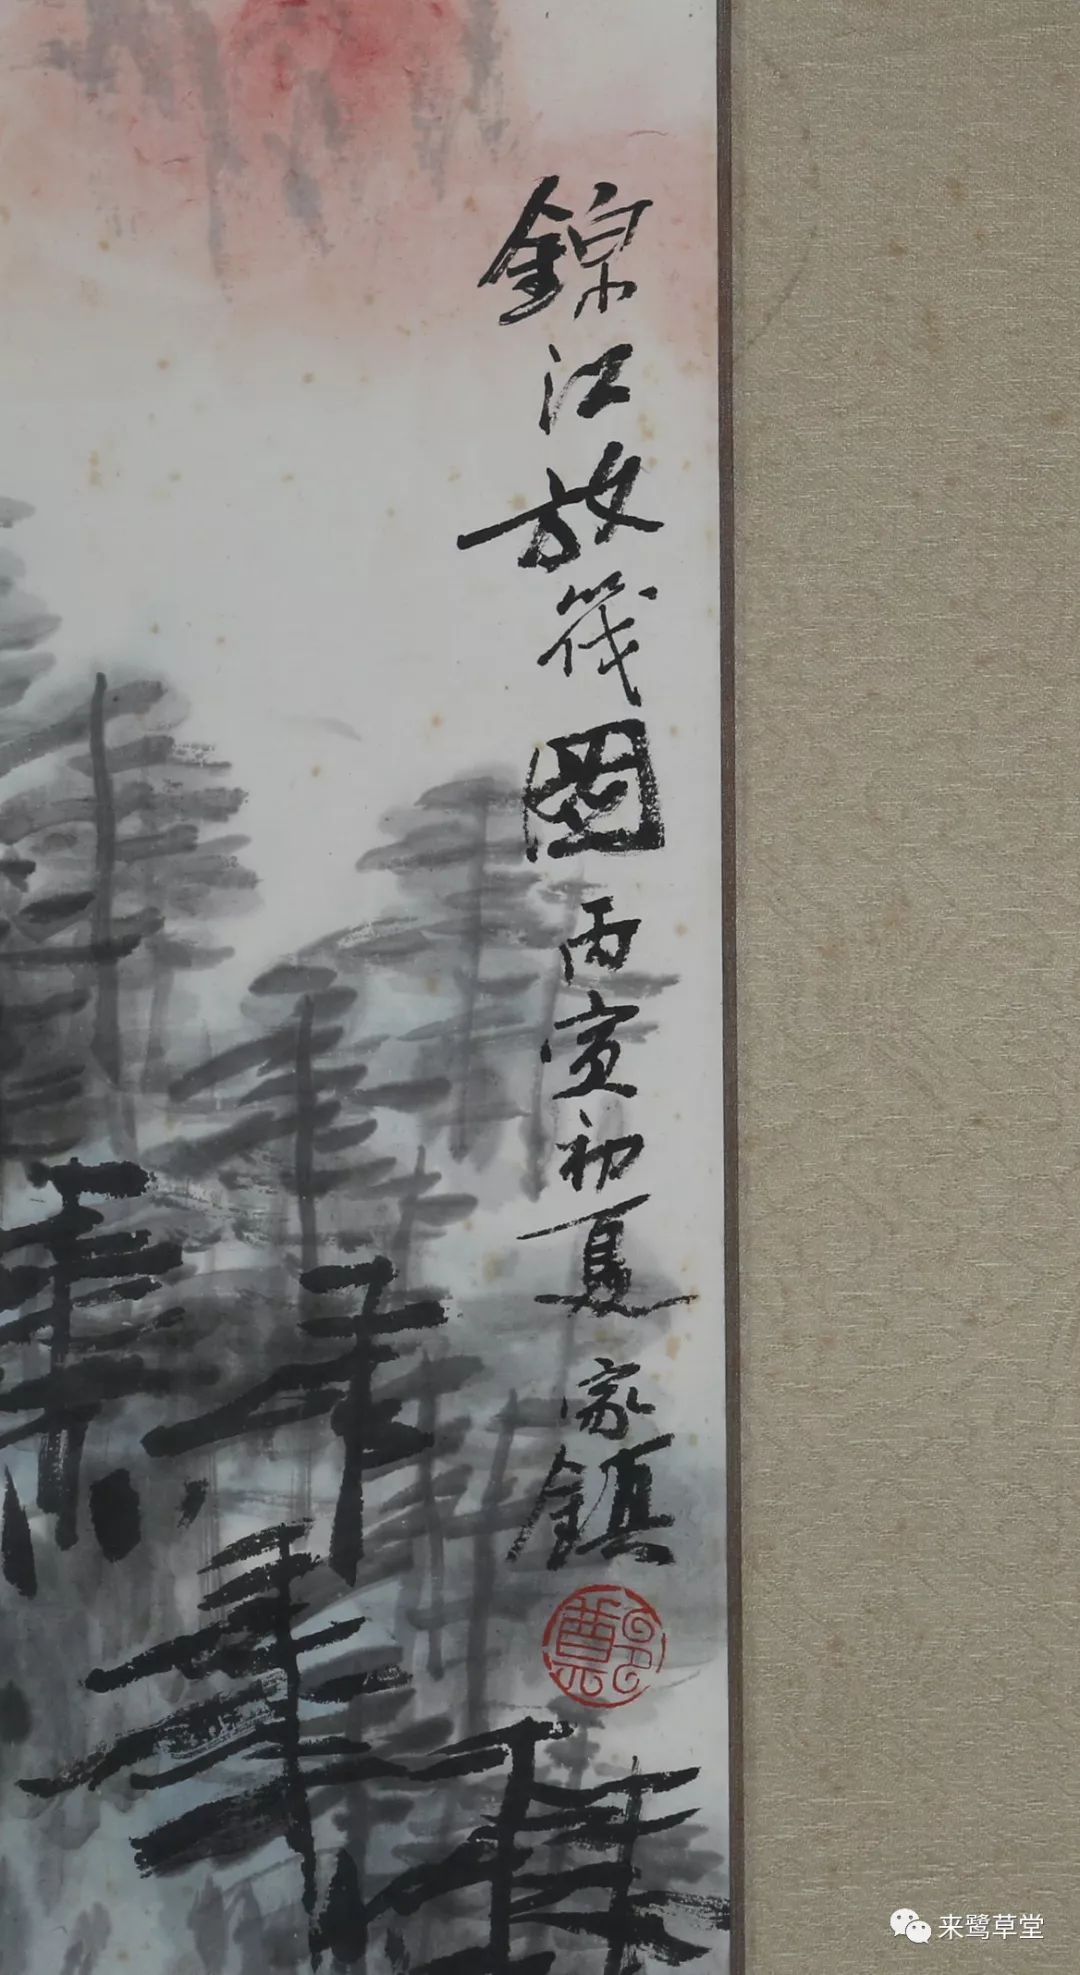 錦江放筏圖丙寅初夏家鎮
鄭
来鹭草堂